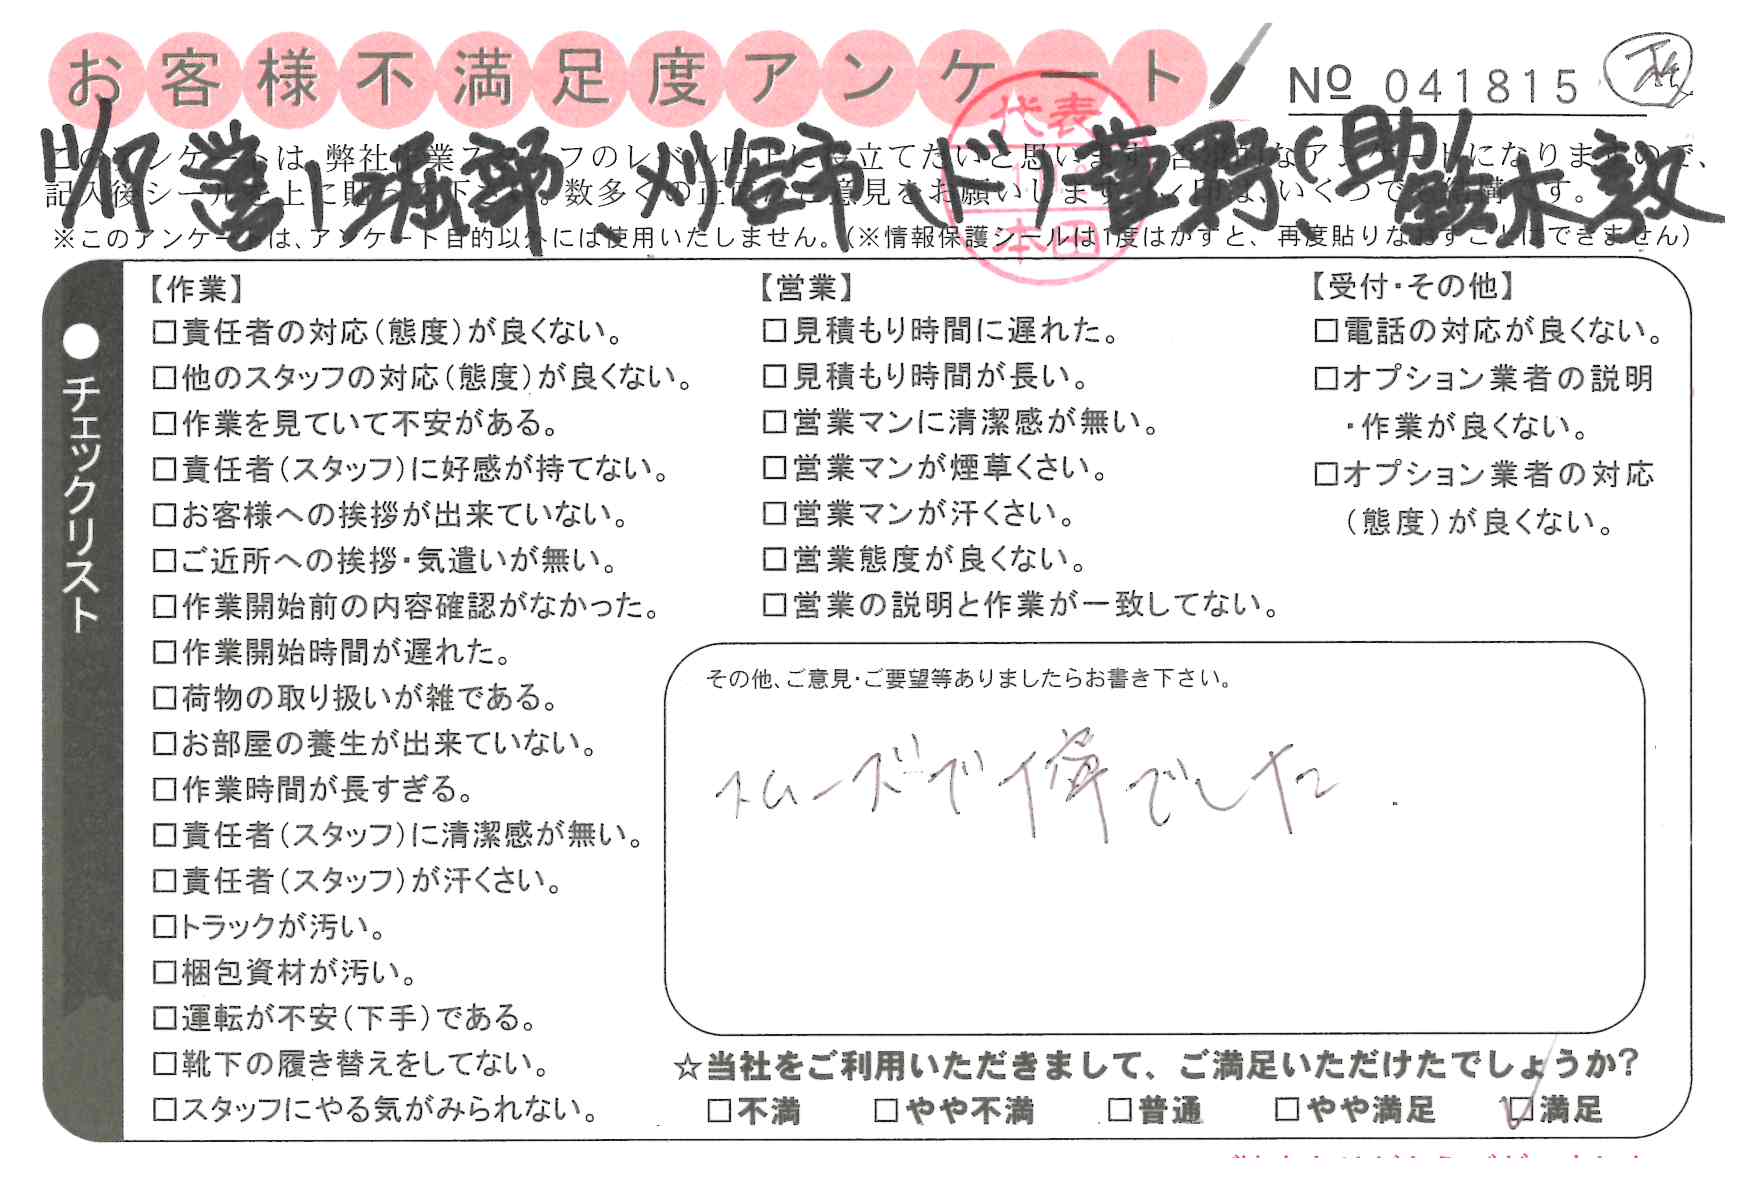 お客様不満足度アンケート
№ 041815
営)堀部 刈谷市 ド)菅野(助)鈴木敦
※このアンケートは、アンケート目的以外には使用いたしません。(※情報保護シールは1度はがすと、再度貼りなおすことはできません)
代表
本田
●チェックリスト
【作業】
□責任者の対応(態度)が良くない。
□他のスタッフの対応(態度)が良くない。
□作業を見ていて不安がある。
□責任者(スタッフ)に好感が持てない。
□お客様への挨拶が出来ていない。
□ご近所への挨拶・気遣いが無い。
□作業開始前の内容確認がなかった。
□作業開始時間が遅れた。
□荷物の取り扱いが雑である。
□お部屋の養生が出来ていない。
□作業時間が長すぎる。
□責任者(スタッフ)に清潔感が無い。
□責任者(スタッフ)が汗くさい。
□トラックが汚い。
□梱包資材が汚い。
□運転が不安(下手)である。
□靴下の履き替えをしてない。
□スタッフにやる気がみられない。
【営業】
□見積もり時間に遅れた。
□見積もり時間が長い。
□営業マンに清潔感が無い。
□営業マンが煙草くさい。
□営業マンが汗くさい。
□営業態度が良くない。
□営業の説明と作業が一致してない。
【受付・その他】
□電話の対応が良くない。
□オプション業者の説明
・作業が良くない。
□オプション業者の対応
(態度)が良くない。
その他、ご意見・ご要望等ありましたらお書き下さい。
スムーズで
でした
☆当社をご利用いただきまして、ご満足いただけたでしょうか?
□不満 □やや不満 □普通 □やや満足 ☑満足